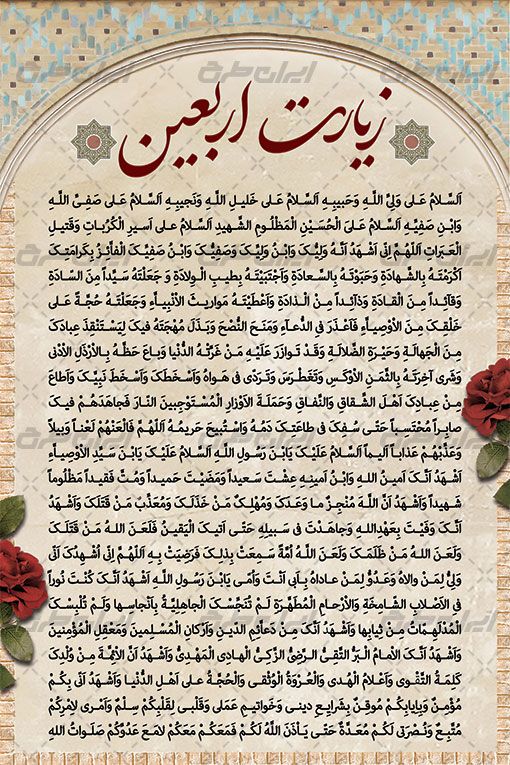 زیارت اربعین
اَلسَّلامُ عَلی وَلِیِّ اللَّهِ وَحَبیبِهِ اَلسَّلامُ عَلی خَلیلِ اللَّهِ وَنَجیبِهِ اَلسَّلامُ عَلی صَفِیِّ اللَّهِ
وَابْنِ صَفِیِّهِ اَلسَّلامُ عَلیَ الْحُسَیْنِ الْمَظْلُومِ الشَّهیدِ اَلسَّلامُ علی اَسیرِ الْکُرُباتِ وَقَتیلِ
الْعَبَراتِ اَللّهُمَّ اِنّی اَشْهَدُ اَنَّهُ وَلِیُّکَ وَابْنُ وَلِیِّکَ وَصَفِیُّکَ وَابْنُ صَفِیِّکَ الْفائِزُ بِکَرامَتِکَ
اَکْرَمْتَهُ بِالشَّهادَةِ وَحَبَوْتَهُ بِالسَّعادَةِ وَاَجْتَبَیْتَهُ بِطیبِ الْوِلادَةِ وَ جَعَلْتَهُ سَیِّداً مِنَ السّادَةِ
وَقآئِداً مِنَ الْقادَةِ وَذآئِداً مِنَ الْذادَةِ وَاَعْطَیْتَهُ مَواریثَ الاَْنْبِیآءِ وَجَعَلْتَهُ حُجَّةً عَلی
خَلْقِکَ مِنَ الاَْوْصِیآءِ فَاَعْذَرَ فیِ الدُّعآءِ وَمَنَحَ النُّصْحَ وَبَذَلَ مُهْجَتَهُ فیکَ لِیَسْتَنْقِذَ عِبادَکَ
مِنَ الْجَهالَةِ وَحَیْرَةِ الضَّلالَةِ وَقَدْ تَوازَرَ عَلَیْهِ مَنْ غَرَّتْهُ الدُّنْیا وَباعَ حَظَّهُ بِالاَْرْذَلِ الاَْدْنی
وَشَری آخِرَتَهُ بِالثَّمَنِ الاَْوْکَسِ وَتَغَطْرَسَ وَتَرَدّی فی هَواهُ وَاَسْخَطَکَ وَاَسْخَطَ نَبِیَّکَ وَاَطاعَ
مِنْ عِبادِکَ اَهْلَ الشِّقاقِ وَالنِّفاقِ وَحَمَلَةَ الاَْوْزارِ الْمُسْتَوْجِبینَ النّارَ فَجاهَدَهُمْ فیکَ
صابِراً مُحْتَسِباً حَتّی سُفِکَ فی طاعَتِکَ دَمُهُ وَاسْتُبیحَ حَریمُهُ اَللّهُمَّ فَالْعَنْهُمْ لَعْناً وَبیلاً
وَعَذِّبْهُمْ عَذاباً اَلیماً اَلسَّلامُ عَلَیْکَ یَابْنَ رَسُولِ اللَّهِ اَلسَّلامُ عَلَیْکَ یَابْنَ سَیِّدِ الاَْوْصِیآءِ
اَشْهَدُ اَنَّکَ اَمینُ اللهِ وَابْنُ اَمینِهِ عِشْتَ سَعیداً وَمَضَیْتَ حَمیداً وَمُتَّ فَقیداً مَظْلُوماً
شَهیداً وَاَشْهَدُ اَنَّ اللَّهَ مُنْجِزٌ ما وَعَدَکَ وَمُهْلِکٌ مَنْ خَذَلَکَ وَمُعَذِّبٌ مَنْ قَتَلَکَ وَاَشْهَدُ
اَنَّکَ وَفَیْتَ بِعَهْدِاللهِ وَجاهَدْتَ فی سَبیلِهِ حَتّی اَتیکَ الْیَقینُ فَلَعَنَ اللهُ مَنْ قَتَلَکَ
وَلَعَنَ اللهُ مَنْ ظَلَمَکَ وَلَعَنَ اللَّهُ اُمَّةً سَمِعَتْ بِذلِکَ فَرَضِیَتْ بِهِ اَللّهُمَّ اِنّی اُشْهِدُکَ اَنّی
وَلِیٌّ لِمَنْ والاهُ وَعَدُوٌّ لِمَنْ عاداهُ بِاَبی اَنْتَ وَاُمّی یَابْنَ رَسُولِ اللَّهِ اَشْهَدُ اَنَّکَ کُنْتَ نُوراً
فیِ الاَْصْلابِ الشّامِخَةِ وَالاَْرْحامِ الْمُطَهَّرَةِ لَمْ تُنَجِّسْکَ الْجاهِلِیَّةُ بِاَنْجاسِها وَلَمْ تُلْبِسْکَ
الْمُدْلَهِمّاتُ مِنْ ثِیابِها وَاَشْهَدُ اَنَّکَ مِنْ دَعآئِمِ الدّینِ وَاَرْکانِ الْمُسْلِمینَ وَمَعْقِلِ الْمُؤْمِنینَ
وَاَشْهَدُ اَنَّکَ الاِمامُ الْبَرُّ التَّقِیُّ الرَّضِیُّ الزَّکِیُّ الْهادِی الْمَهْدِیُّ وَاَشْهَدُ اَنَّ الاَْئِمَّةَ مِنْ وُلْدِکَ
کَلِمَةُ التَّقْوی وَاَعْلامُ الْهُدی وَالْعُرْوَةُ الْوُثْقی وَالْحُجَّةُ علی اَهْلِ الدُّنْیا وَاَشْهَدُ اَنّی بِکُمْ
مُؤْمِنٌ وَبِاِیابِکُمْ مُوقِنٌ بِشَرایِعِ دینی وَخَواتیمِ عَمَلی وَقَلْبی لِقَلْبِکُمْ سِلْمٌ وَاَمْری لاَِمْرِکُمْ
مُتَّبِعٌ وَنُصْرَتی لَکُمْ مُعَدَّةٌ حَتّی یَاْذَنَ اللَّهُ لَکُمْ فَمَعَکُمْ مَعَکُمْ لامَعَ عَدُوِّکُمْ صَلَواتُ اللهِ